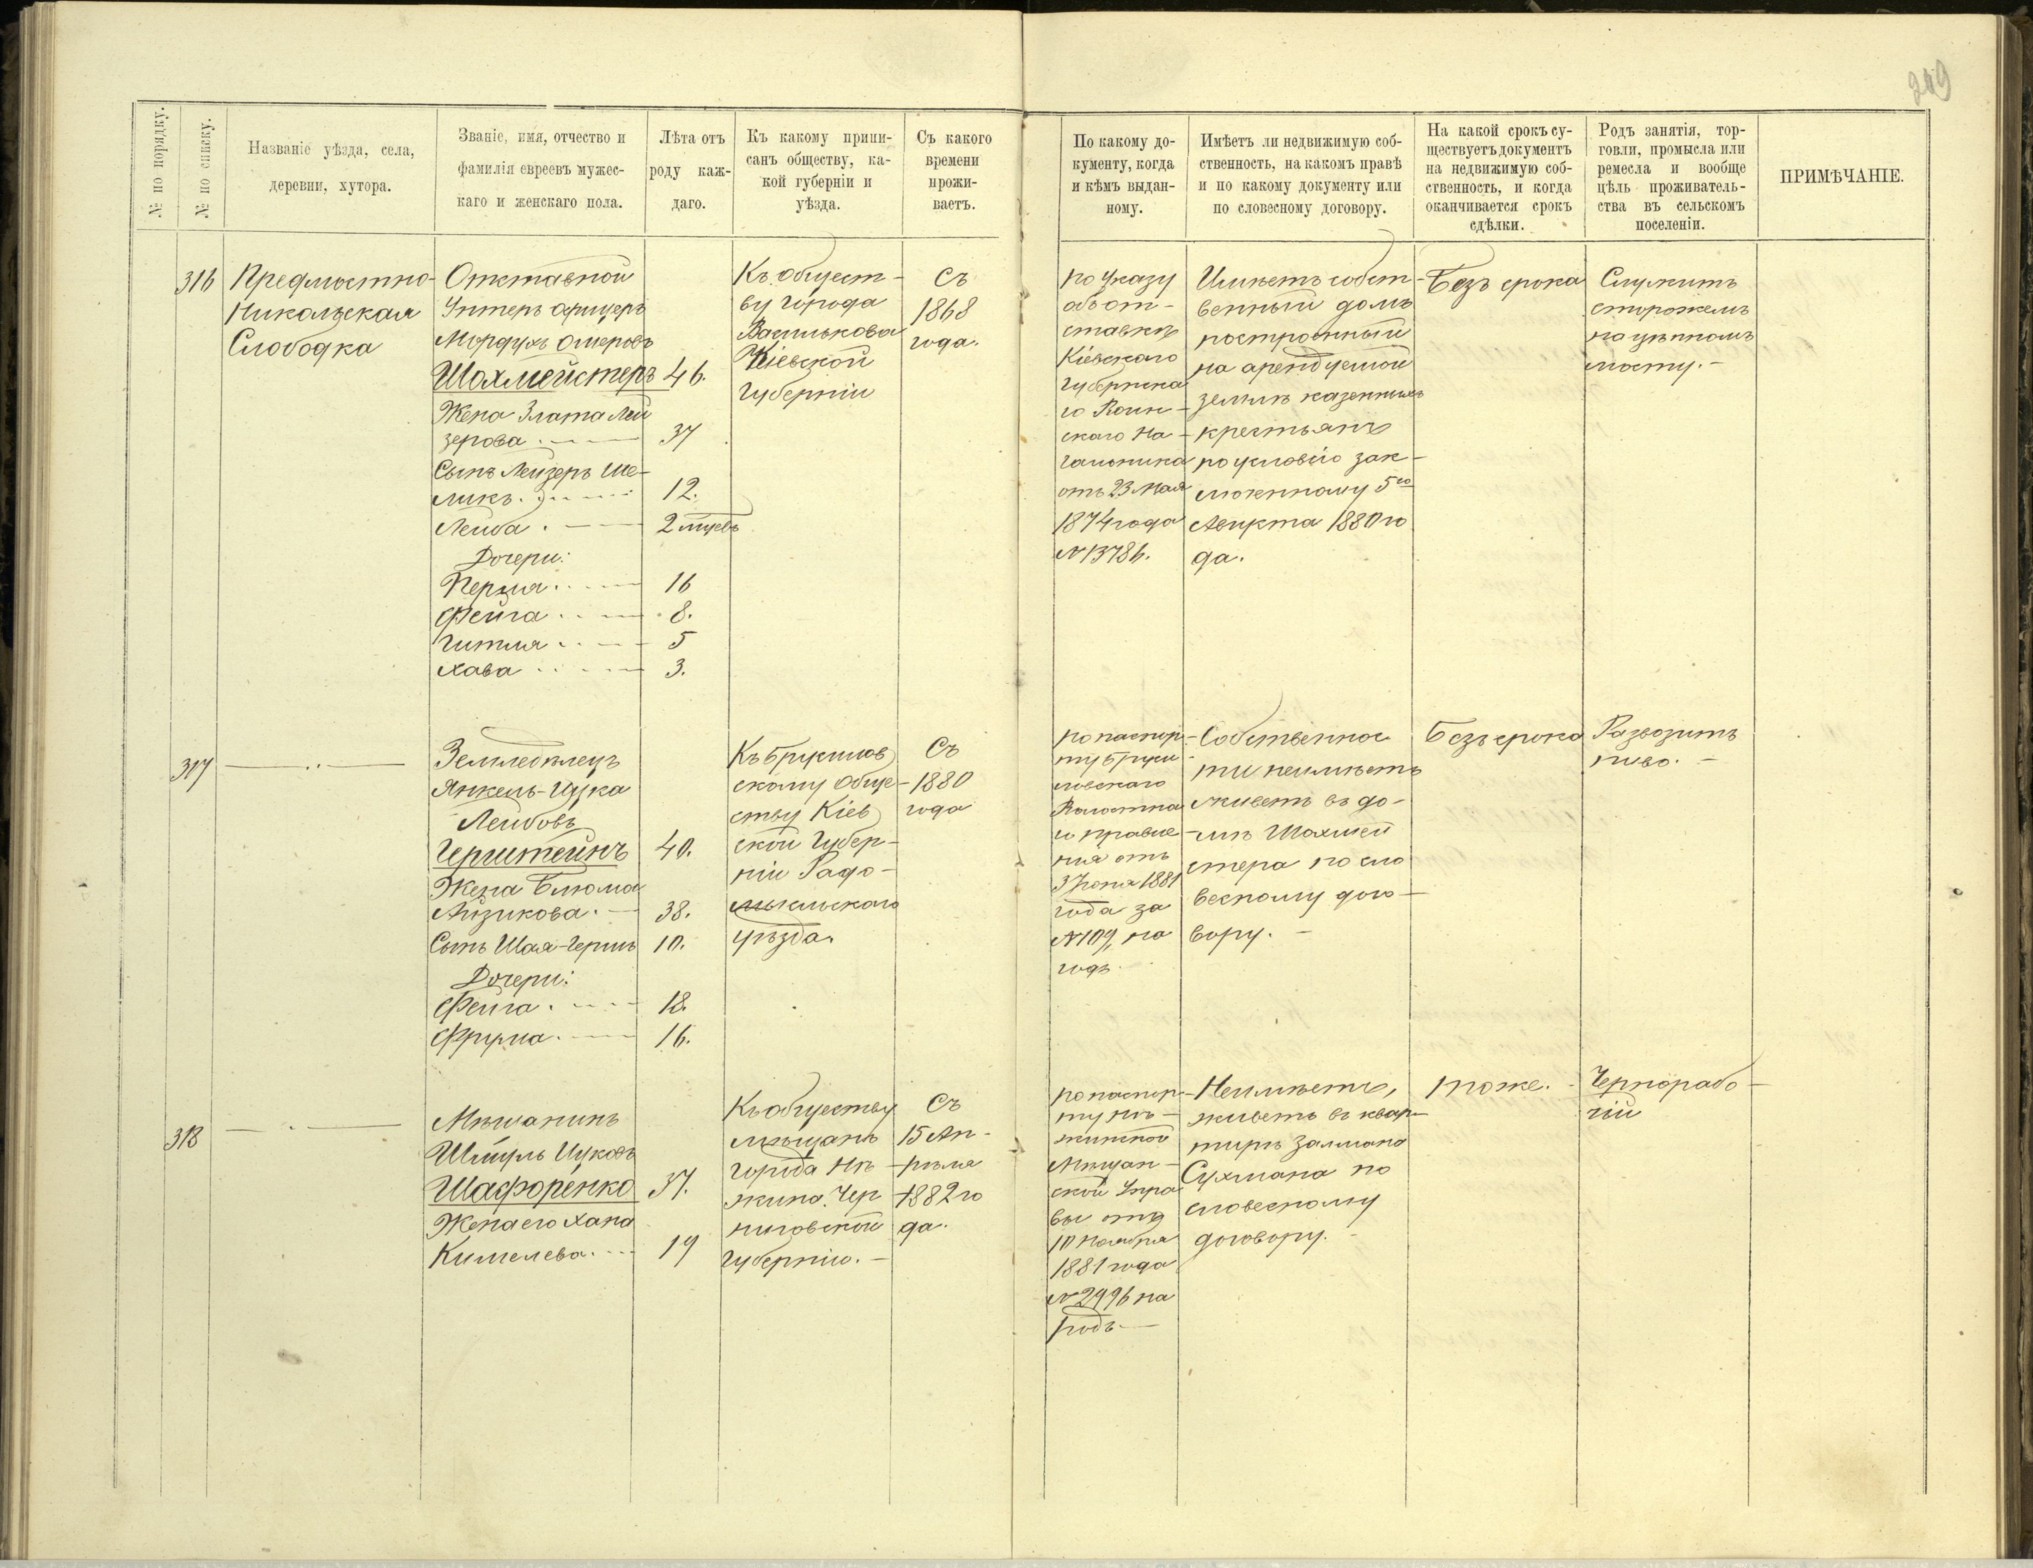 209
№ по порядку.
№ по списку.
Названіе уѣзда, села,
деревни, хутора.
Званіе, имя, отчество и
фамилія евреевъ мужес-
каго и женскаго пола.
Лѣта отъ
роду каж-
даго.
Къ какому припи-
санъ обществу, ка-
кой губерніи и
уѣзда.
Съ какого
времени
прожи-
ваетъ.
По какому до-
кументу, когда
и кѣмъ выдан-
ному.
Имѣетъ ли недвижимую соб-
ственность, на какомъ правѣ
и по какому документу или
по словесному договору.
На какой срокъ су-
ществуетъ документъ
на недвижимую соб-
ственность, и когда
оканчивается срокъ
сдѣлки.
Родъ занятія, тор-
говли, промысла или
ремесла и вообще
цѣль проживатель-
ства въ сельскомъ
поселеніи.
ПРИМѢЧАНІЕ.
316
Предмостно-
Никольская
Слободка
Отставной
Унтеръ офицеръ
Мордухъ Омеровъ
Шахмейстеръ 46.
Жена Злата Лей
зерова. 37
Сынъ Лейзеръ Ше-
ликъ. 12.
Лейба. 2 мѣсъ
Дочери:
Перля. 16
Фейга. 8.
Гитля. 5
Хава 3.
Къ общест-
ву города
Василькова
Кіевской
губерніи
Съ
1868
года.
По указу
объ от-
ставкѣ
Кіевскаго
Губернска
го Воин-
скаго На-
чальника
отъ 23 Мая
1874 года
№ 13786.
Имѣетъ собст-
венный домъ
построенный
на арендуемой
землѣ казенныхъ
крестьянъ
по условію зак-
люченному 5го
Августа 1880 го
да.
Безъ срока
Служитъ
сторожемъ
на цѣпномъ
мосту.-
317
Земледѣлецъ
Янкель-Ицка
Лейбовъ
Герштейнъ 40.
Жена Блюма
Айзикова. 38.
Сынъ Шая-Гершъ 10.
Дочери:
Фейга. 18.
Фрума. 16.
Къ Брусилов
скому Обще-
ству Кіев
ской Губер-
ніи Радо-
мысльскаго
уѣзда.
Съ
1880
года
по паспор-
ту Бруси-
ловскаго
Волостна
го правле-
нія отъ
3 Іюня 1881
года за
№ 109, на
годъ.
Собственнос
ти неимѣетъ
живетъ въ до-
мѣ Шахмей
стера по сло
весному дого-
вору.-
Безъ срока
Развозитъ
пиво.-
318
Мѣщанинъ
Шмуль Ицковъ
Шафоренко 37.
Жена его Хана
Кимелева. 19
Къ обществу
мѣщанъ
города Нѣ-
жина. Чер
ниговской
губерніи.-
Съ
15 Ап-
рѣля
1882 го
да.
по паспор-
ту Нѣ-
жинской
Мѣщан-
ской Упра
вы отъ
10 Ноября
1881 года
№ 2996 на
годъ.-
Неимѣетъ,
живетъ въ квар-
тирѣ Залмана
Сухмана по
словесному
договору.-
тоже.
Чернорабо-
чій